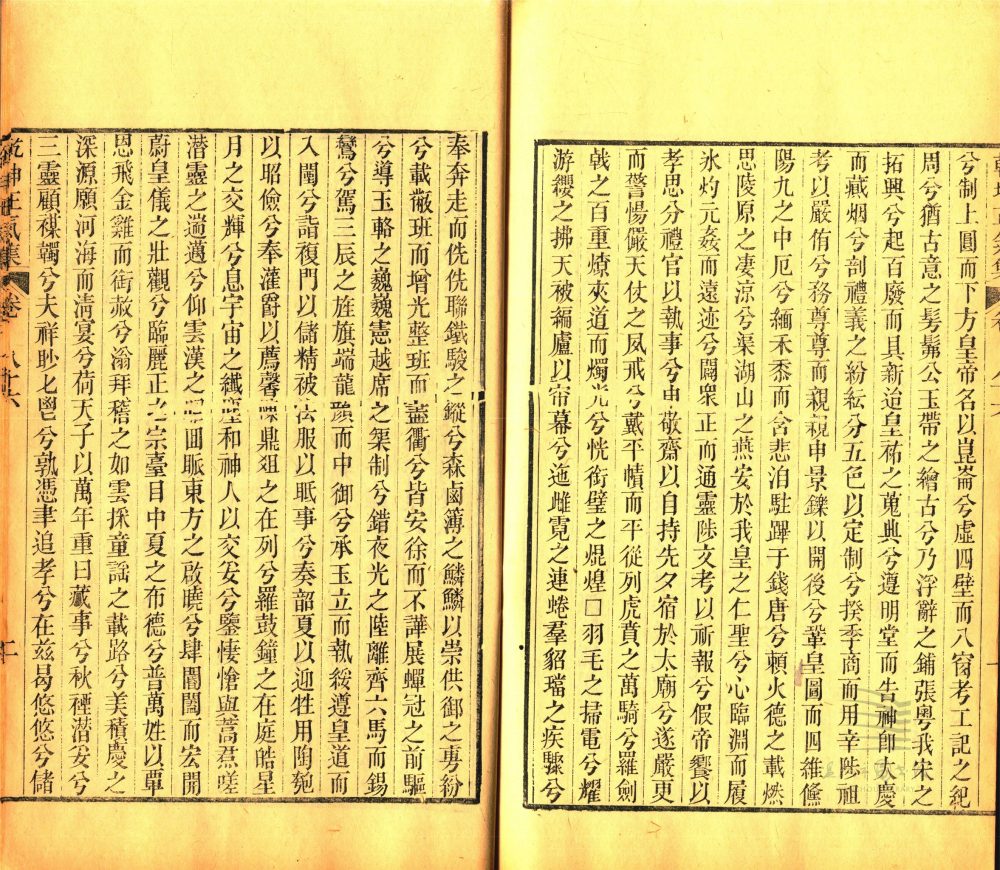 兮制上圓而下方皇帝名以崑崙兮虛四壁而八窗考工記之紀
周兮猶古意之髣髴公玉帶之繪古兮乃浮辭之鋪張粤我宋之
拓興兮起百廢而具新迨皇祐之蒐典兮遵明堂而告神卽大慶
而藏烟兮剖禮義之紛紜分五色以定制兮揆季商而用辛陟祖
考以嚴侑兮務尊尊而親親申景鑠以開後兮鞏皇圖而四維儵
陽九之中厄兮緬禾黍而含悲洎駐蹕于錢唐兮賴火德之載燃
思陵原之凄涼兮渠湖山之燕安於我皇之仁聖兮心臨淵而履
氷灼元姦而遠迹兮闢衆正而通靈陟文考以祈報兮假帝饗以
孝思分禮官以執事兮申敬齋以自持先夕宿於太廟兮遂嚴更
而警惕儼天仗之夙戒兮戴平幘而平從列虎賁之萬騎兮羅劍
戟之百重燎夾道而燭光兮恍銜璧之焜煌□羽毛之掃電兮耀
游纓之拂天被編廬以帘幕兮迤雌霓之連蜷羣貂璫之疾驟兮
奉奔走而侁侁聯鐵駿之縱兮森鹵簿之鱗鱗以崇供御之專紛
兮載撤班而增光整班而蓋衢兮皆安徐而不譁展蟬冠之前驅
兮導玉輅之巍巍憲越席之筑制兮錯夜光之陸離齊六馬而錫
鸞兮駕三辰之旌旗端龍顏而中御兮承玉立而執綏遵皇道而
入闉兮詣復門以儲精被法服以眂事兮奏韶夏以迎牲用陶匏
以昭儉兮奉灌爵以薦馨 鼎俎之在列兮羅鼓鐘之在庭皓星
月之交輝兮息宇宙之纖塵和神人以交妥兮鑒悽愴與蒿焄嗟
潛靈之遄邁兮仰雲漢之 回眡東方之啟曉兮肆閶闔而宏開
蔚皇儀之壯觀兮臨麗正之宗臺目中夏之布德兮普萬姓以覃
恩飛金雞而銜赦兮滃拜稽之如雲採童謡之載路兮美積慶之
深源願河海而淸宴兮荷天子以萬年重曰藏事兮秋禋潛妥兮
三靈顧禖韣兮夫祥肸匕鬯兮孰憑聿追孝兮在茲曷悠悠兮儲
乾坤正氣集 卷 八十六 十一